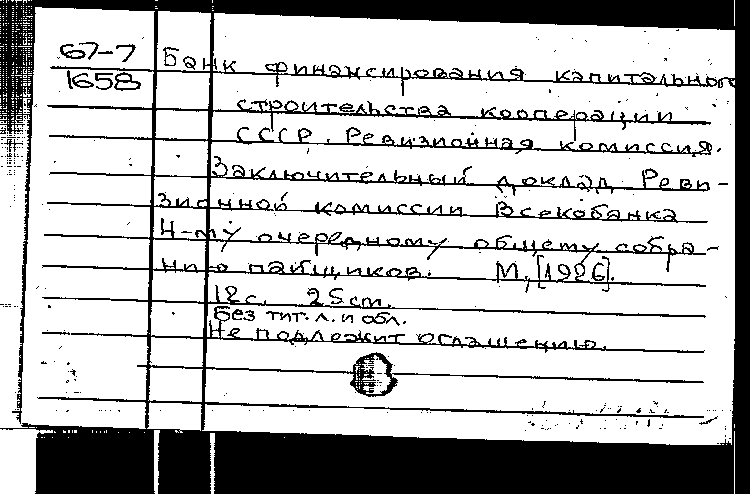 67-7
1658
Банк финансирования капитального
строительства кооперации
СССР. Ревизионная комиссия.
Заключительный доклад Реви-
зионной комиссии Всекобанка
4-му очередному общему собра-
нию пайщиков. М, [1926].
12 с. 25 cm.
Без тит. л. и обл.
Не подлежит оглашению.